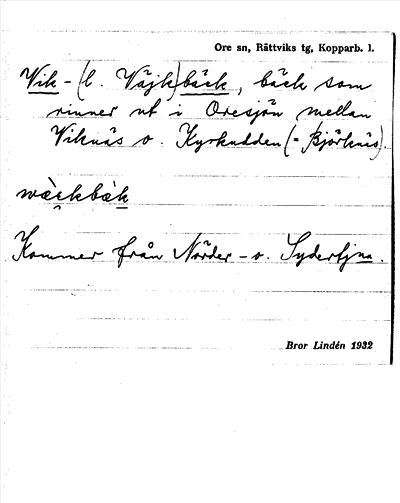 Ore sn, Rättviks tg, Kopparb. l.
Vik - (l. Väjk) bäck, bäck som
rinner ut i Oresjön mellan
Viknäs o. Kyrkudden (= Björknäs).
Kommer från Nörder - o. Sydertjna.
Bror Lindén 1932